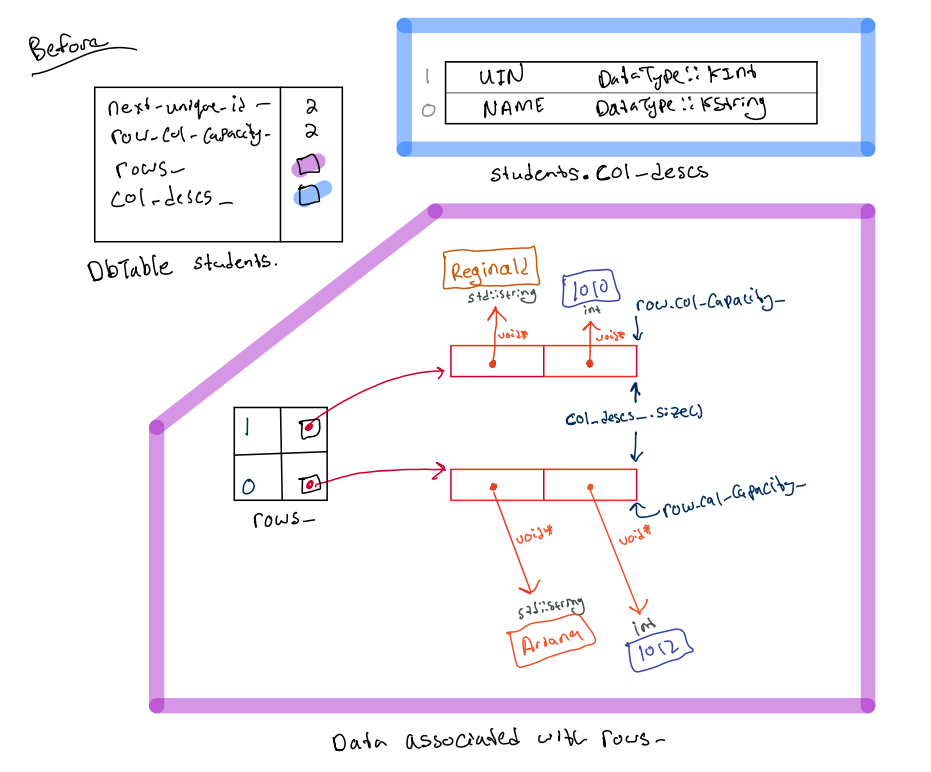 Before
next-unique-id_ 2
row_col_capacity_ 2
rows_
col_descs_
DbTable students.
1 UIN DataType::kInt
0 NAME DataType::kString
students.col_descs
Reginald
std::string
1010
int
row_col_Capacity_
void*
void*
col_descs_.size()
1
0
rows_
row_col_Capacity_
void*
void*
std::string
Ariana
int
1012
Data associated with rows_